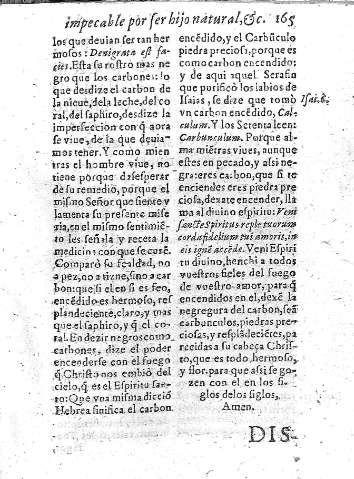 impecable por ser hijo natural, &c. 165
los que deuian ser tan her
mosos: Denigrata est fa
cies. Esta su rostro mas ne
gro que los carbones: lo
que desdize el carbon de
la nieue, de la leche, del co
ral, del saphiro, desdize la
imperfeccion con q̃ aora
se viue, de la que deuia-
mos tener. Y como mien
tras el hombre viue, no
tiene porque desesperar
de su remedio, porque el
mismo Señor que siente y
lamenta su presente mise
ria, en el mismo sentimiẽ
to les señala y receta la
medicina con que se cure.
Comparò su fealdad, no
a pez, no a tizne, sino a car
bon: que si el en si es feo,
encẽdido es hermoso, res
plandeciente, claro, y mas
que el saphiro, y q̃ el co-
ral. En dezir negros como
carbones, dize el poder
encenderse con el fuego
q̃ Christo nos embiò del
cielo, q̃ es el Espiritu san-
to: Que vna misma dicciõ
Hebrea sinifica el carbon
encẽdido, y el Carbũculo
piedra preciosa, porque es
como carbon encendido;
y de aqui aquel Serafin
que purificò los labios de
Isaias, se dize que tomò
vn carbon encẽdido, Cal-
culum. Y los Setenta leen:
Carbunculum. Porque al-
ma miẽtras viues, aunque
estes en pecado, y assi ne-
gra: eres carbon, que si te
enciendes eres piedra pre
ciosa, dexate encender, lla
ma al diuino espiritu: Veni
sancte Spiritus reple tuorum
corda fidelium tui amoris, in
eis ignẽ accẽde. Veni Espiri
tu diuino, henchi a todos
vuestros fieles del fuego
de vuestro amor, para q̃
encendidos en el, dexẽ la
negregura del carbon, seã
carbunculos, piedras pre-
ciosas, y resplãdeciẽtes, pa
recidas a su cabeça Chris-
to, que es todo hermoso,
y flor, para que assi se go-
zen con el en los si-
glos de los siglos,
Amen.
Isai. 6.
DIS-